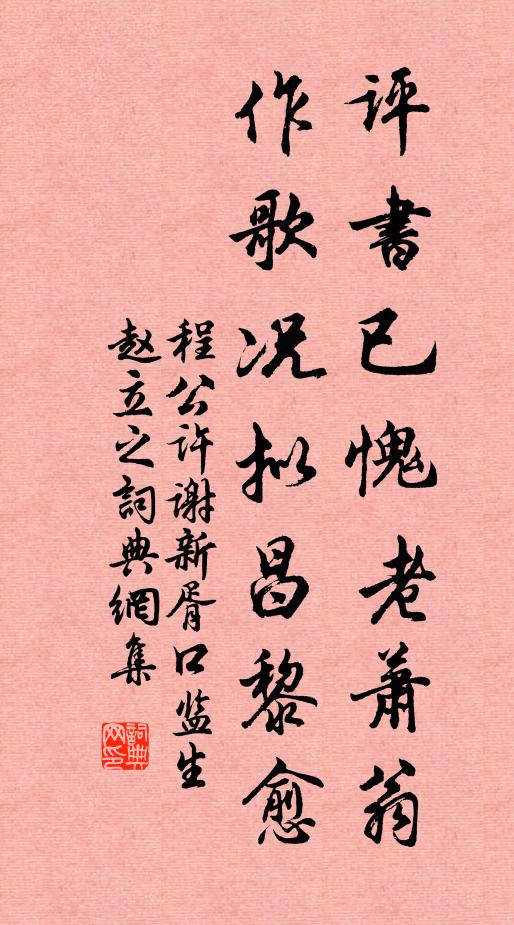 评书已愧老萧翁
作歌况拟昌黎愈
程公许谢新胥口监生
赵立之詞典網集
詞典
网印